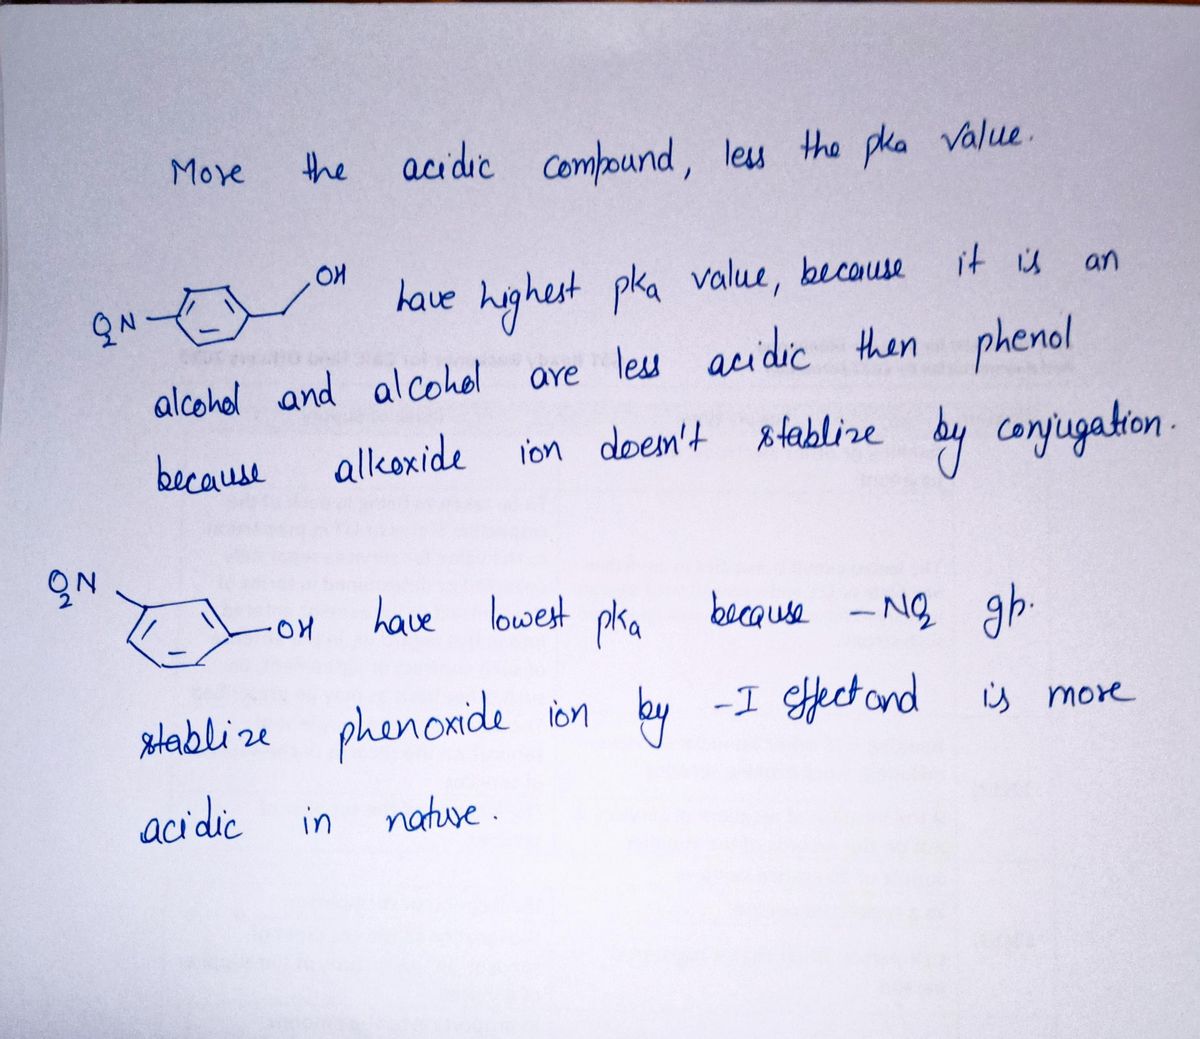 More the acidic compound, less the pka value.
O2N OH have highest pka value, because it is an
alcohol and alcohol are less acidic then phenol
because alkoxide ion doesn't stablize by conjugation.
O2N OH have lowest pka because -NO2 gp.
stablize phenoxide ion by -I effect and is more
acidic in nature.